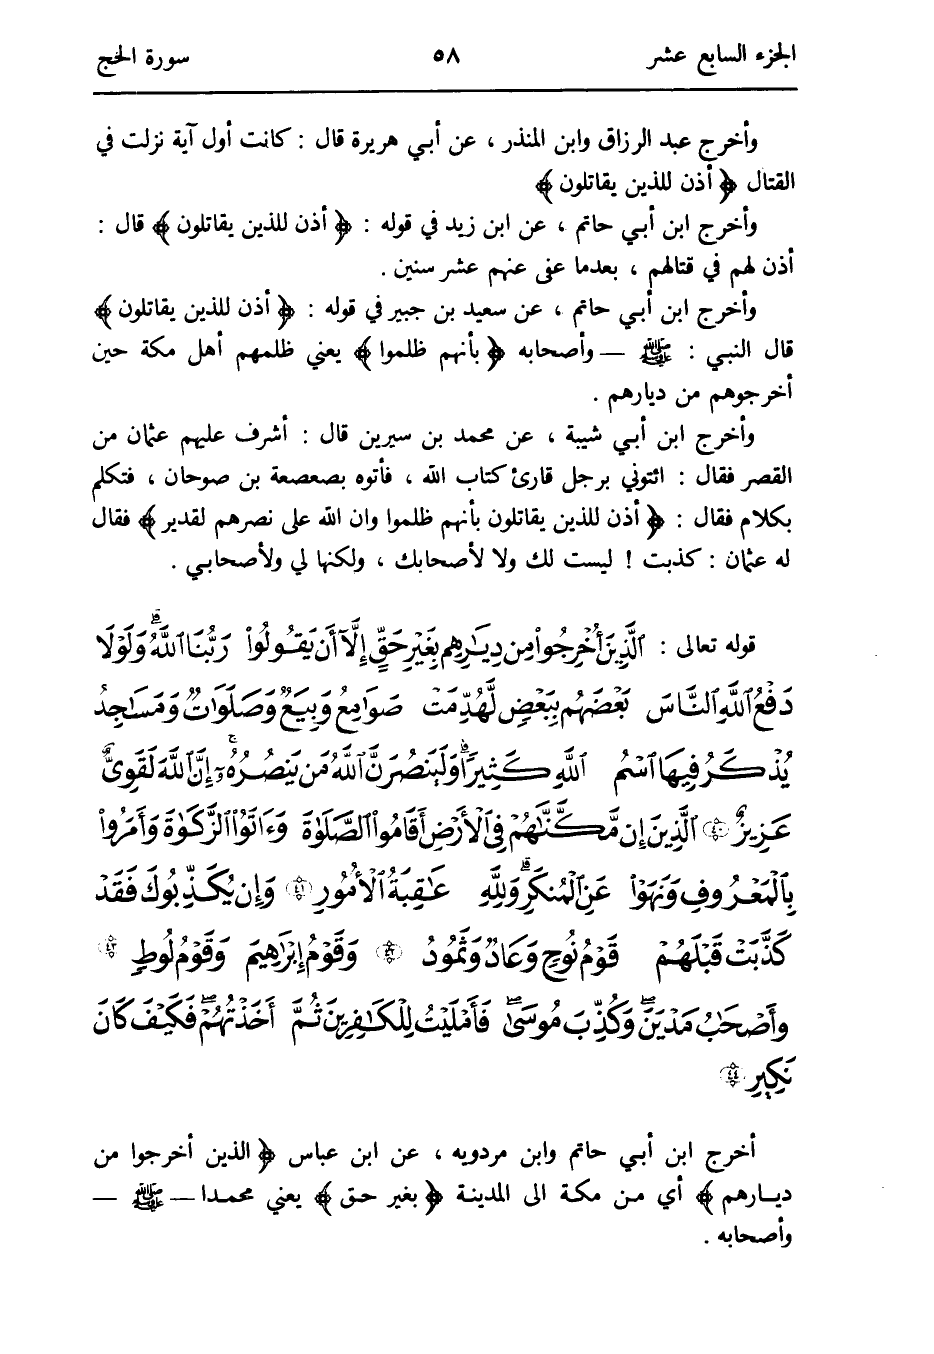 الجزء السابع عشر ٥٨ سورة الحج
وأخرج عبد الرزاق وابن المنذر ، عن أبي هريرة قال : كانت أول آية نزلت في
القتال ﴿ أذن للذين يقاتلون ﴾
وأخرج ابن أبي حاتم ، عن ابن زيد في قوله : ﴿ أذن للذين يقاتلون ﴾ قال :
أذن لهم في قتالهم ، بعدما عفى عنهم عشر سنين .
وأخرج ابن أبي حاتم ، عن سعيد بن جبير في قوله : ﴿ أذن للذين يقاتلون ﴾
قال النبي : ﷺ — وأصحابه ﴿ بأنهم ظلموا ﴾ يعني ظلمهم أهل مكة حين
أخرجوهم من ديارهم .
وأخرج ابن أبي شيبة ، عن محمد بن سيرين قال : أشرف عليهم عثمان من
القصر فقال : ائتوني برجل قارئ كتاب الله ، فأتوه بصعصعة بن صوحان ، فتكلم
بكلام فقال : ﴿ أذن للذين يقاتلون بأنهم ظلموا وان الله على نصرهم لقدير ﴾ فقال
له عثمان : كذبت ! ليست لك ولا لأصحابك ، ولكنها لي ولأصحابي .
قوله تعالى : ٱلَّذِينَ أُخۡرِجُواْ مِن دِيَٰرِهِم بِغَيۡرِ حَقٍّ إِلَّآ أَن يَقُولُواْ رَبُّنَا ٱللَّهُۗ وَلَوۡلَا
دَفۡعُ ٱللَّهِ ٱلنَّاسَ بَعۡضَهُم بِبَعۡضٖ لَّهُدِّمَتۡ صَوَٰمِعُ وَبِيَعٞ وَصَلَوَٰتٞ وَمَسَٰجِدُ
يُذۡكَرُ فِيهَا ٱسۡمُ ٱللَّهِ كَثِيرٗاۗ وَلَيَنصُرَنَّ ٱللَّهُ مَن يَنصُرُهُۥٓۚ إِنَّ ٱللَّهَ لَقَوِيٌّ
عَزِيزٌ ۝٤٠ ٱلَّذِينَ إِن مَّكَّنَّٰهُمۡ فِي ٱلۡأَرۡضِ أَقَامُواْ ٱلصَّلَوٰةَ وَءَاتَوُاْ ٱلزَّكَوٰةَ وَأَمَرُواْ
بِٱلۡمَعۡرُوفِ وَنَهَوۡاْ عَنِ ٱلۡمُنكَرِۗ وَلِلَّهِ عَٰقِبَةُ ٱلۡأُمُورِ ۝٤١ وَإِن يُكَذِّبُوكَ فَقَدۡ
كَذَّبَتۡ قَبۡلَهُمۡ قَوۡمُ نُوحٖ وَعَادٞ وَثَمُودُ ۝٤٢ وَقَوۡمُ إِبۡرَٰهِيمَ وَقَوۡمُ لُوطٖ ۝٤٣
وَأَصۡحَٰبُ مَدۡيَنَۖ وَكُذِّبَ مُوسَىٰۖ فَأَمۡلَيۡتُ لِلۡكَٰفِرِينَ ثُمَّ أَخَذۡتُهُمۡۖ فَكَيۡفَ كَانَ
نَكِيرِ ۝٤٤
أخرج ابن أبي حاتم وابن مردويه ، عن ابن عباس ﴿ الذين أخرجوا من
ديارهم ﴾ أي من مكة الى المدينة ﴿ بغير حق ﴾ يعني محمدا — ﷺ —
وأصحابه .